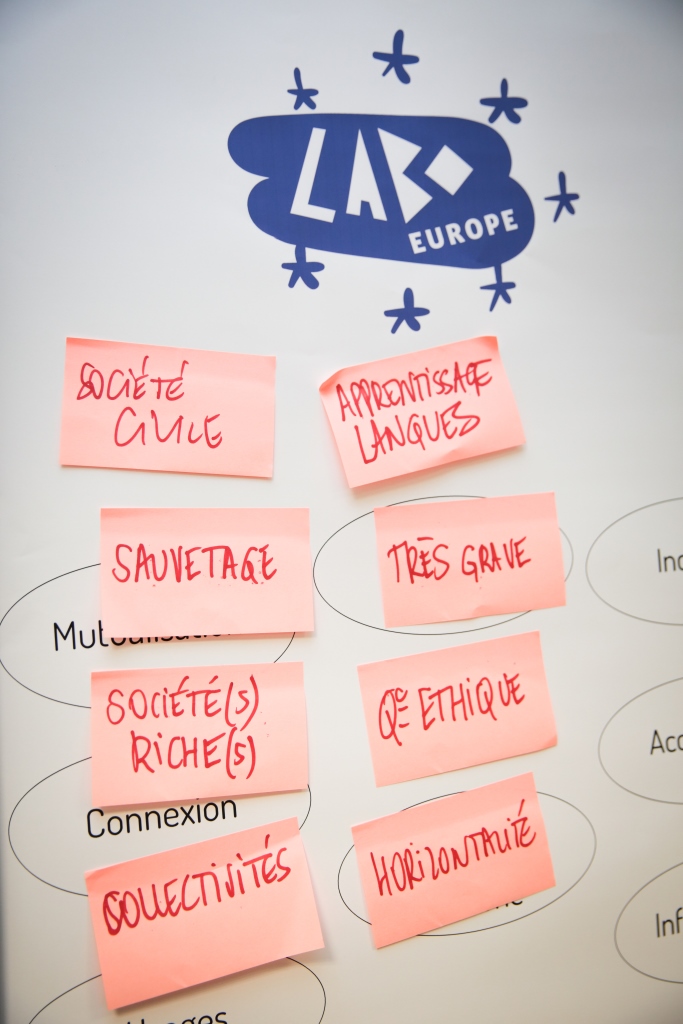 LABO
EUROPE
SOCIÉTÉ
CIVILE
APPRENTISSAGE
LANGUES
SAUVETAGE
TRÈS GRAVE
SOCIÉTÉ(S)
RICHE(S)
Qᵉ ETHIQUE
Connexion
COLLECTIVITÉS
HORIZONTALITÉ